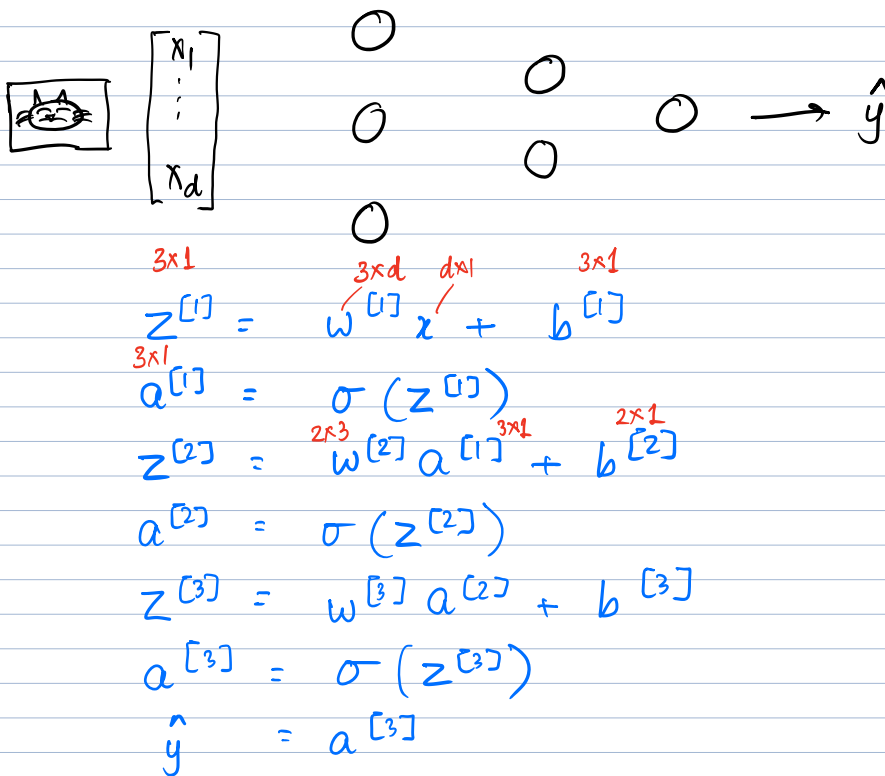 x₁
⋮
x_d
→ ŷ
3×1 3×d d×1 3×1
z^[1] = w^[1] x + b^[1]
3×1
a^[1] = σ(z^[1])
2×3 3×1 2×1
z^[2] = w^[2] a^[1] + b^[2]
a^[2] = σ(z^[2])
z^[3] = w^[3] a^[2] + b^[3]
a^[3] = σ(z^[3])
ŷ = a^[3]